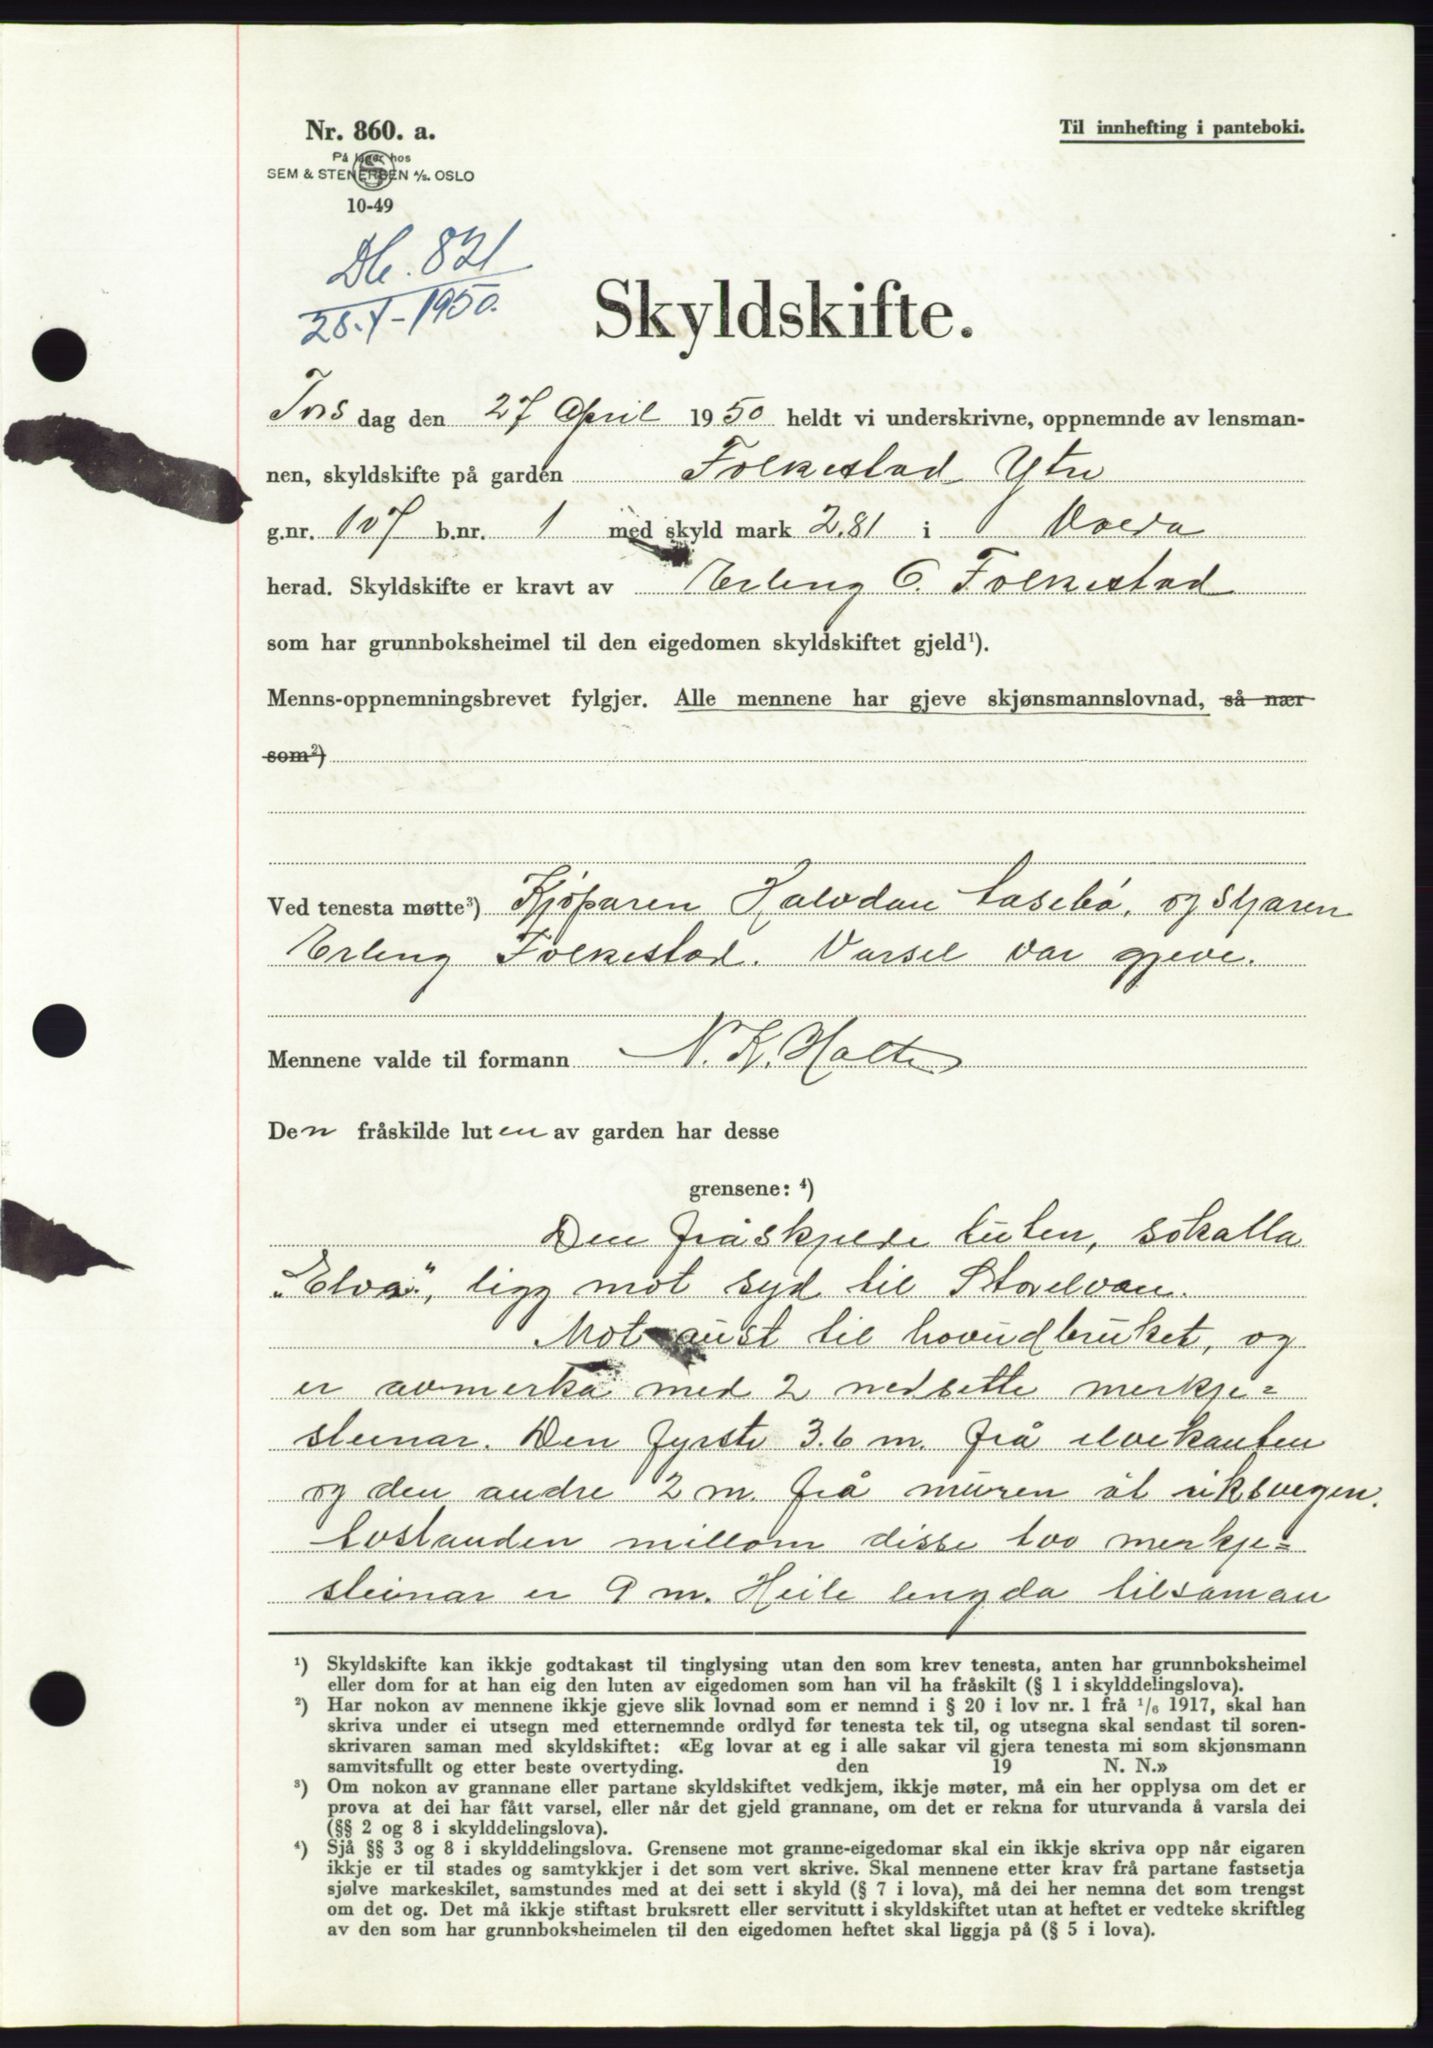 Nr. 860. a.
Til innhefting i panteboki.
På lager hos
SEM & STENERSEN A/S. OSLO
10-49
Db. 821
28.4-1950.
Skyldskifte.
Tors dag den 27 April 1950 heldt vi underskrivne, oppnemnde av lensman-
nen, skyldskifte på garden Folkestad Ytre
g.nr. 107 b.nr. 1 med skyld mark 2.81 i Volda
herad. Skyldskifte er kravt av Erling O. Folkestad
som har grunnboksheimel til den eigedomen skyldskiftet gjeld¹).
Menns-oppnemningsbrevet fylgjer. Alle mennene har gjeve skjønsmannslovnad, så nær
som²)
Ved tenesta møtte³) Kjøparen Halvdan Lasebø, og Stjaren
Erling Folkestad. Varsel var gjeve.
Mennene valde til formann N. K. Holte
Den fråskilde luten av garden har desse
grensene: ⁴)
Den fråskjelde luten, sokalla
"Elva", ligg mot syd til Storelvan.
Mot aust til hovudbruket, og
er avmerka med 2 nedsette merkje=
steinar. Den fyrste 3.6 m. frå elvekanten
og den andre 2 m. frå muren åt riksvegen.
Avstanden millom disse too merkje=
steinar er 9 m. Heile lengda tilsaman
¹) Skyldskifte kan ikkje godtakast til tinglysing utan den som krev tenesta, anten har grunnboksheimel
eller dom for at han eig den luten av eigedomen som han vil ha fråskilt (§ 1 i skylddelingslova).
²) Har nokon av mennene ikkje gjeve slik lovnad som er nemnd i § 20 i lov nr. 1 frå ¹/₆ 1917, skal han
skriva under ei utsegn med etternemnde ordlyd før tenesta tek til, og utsegna skal sendast til soren-
skrivaren saman med skyldskiftet: «Eg lovar at eg i alle sakar vil gjera tenesta mi som skjønsmann
samvitsfullt og etter beste overtyding. den 19 N. N.»
³) Om nokon av grannane eller partane skyldskiftet vedkjem, ikkje møter, må ein her opplysa om det er
prova at dei har fått varsel, eller når det gjeld grannane, om det er rekna for uturvanda å varsla dei
(§§ 2 og 8 i skylddelingslova).
⁴) Sjå §§ 3 og 8 i skylddelingslova. Grensene mot granne-eigedomar skal ein ikkje skriva opp når eigaren
ikkje er til stades og samtykkjer i det som vert skrive. Skal mennene etter krav frå partane fastsetja
sjølve markeskilet, samstundes med at dei sett i skyld (§ 7 i lova), må dei her nemna det som trengst
om det og. Det må ikkje stiftast bruksrett eller servitutt i skyldskiftet utan at heftet er vedteke skriftleg
av den som har grunnboksheimelen til den eigedomen heftet skal liggja på (§ 5 i lova).